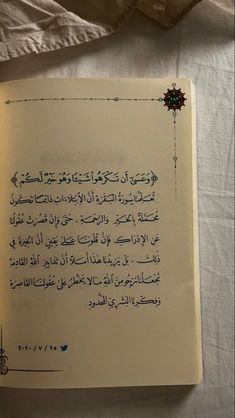 ﴿وَعَسَىٰ أَن تَكْرَهُوا شَيْئًا وَهُوَ خَيْرٌ لَّكُمْ﴾
تُعلّمنا سُورَة البَقَرة أنّ الابتلاءات دائمًا تكُون
مُحمّلة بالخَير والرّحمَة ، حتّىٰ وإنْ قَصُرَتْ عُقولُنا
عَن الإدراك فإنّ قلوبَنَا عَلىٰ يَقينٍ أنّ الخِيرة في
ذلِك ، بَل يَزيدُنا هذا أملًا أنّ تدابير اللّٰه القادِمَة
تجعَلُنا نَرجُو مِنَ اللّٰهِ مَا لا يخطُر علىٰ عُقولنا القاصِرَة
وَفِكرنا البَشَري المَحْدُود.
٢٠٢٠ / ٧ / ٢٥